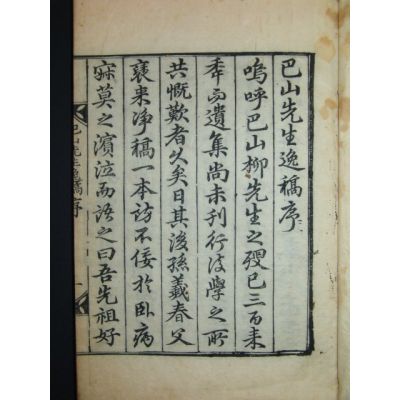 巴山先生逸稿序
嗚呼巴山柳先生之歿已三百来
秊而遺集尚未刊行後學之所
共慨歎者久矣日其後孫羲春父
裒来净稿一本訪不佞於臥病
寂莫之濱泣而語之曰吾先祖好
巴山先生逸稿序
一